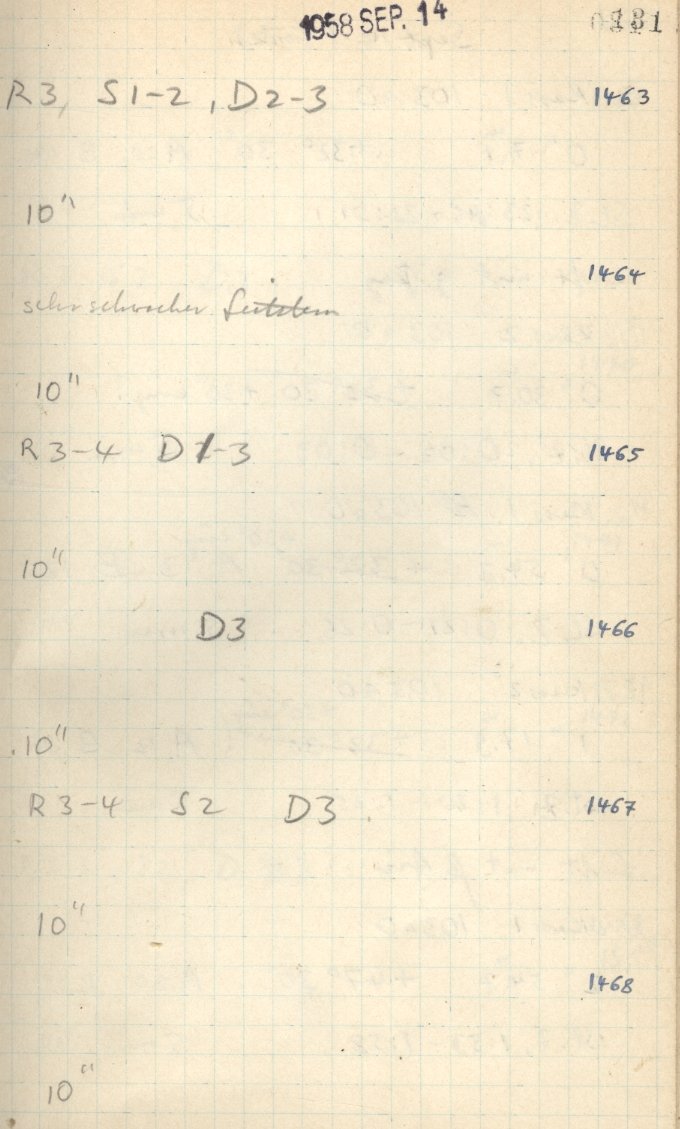 1958 SEP. 14
R3, S1-2, D2-3 1463
10"
1464
sehr schwacher Leitstern
10"
R3-4 D1-3 1465
10"
D3 1466
10"
R3-4 S2 D3. 1467
10"
1468
10"